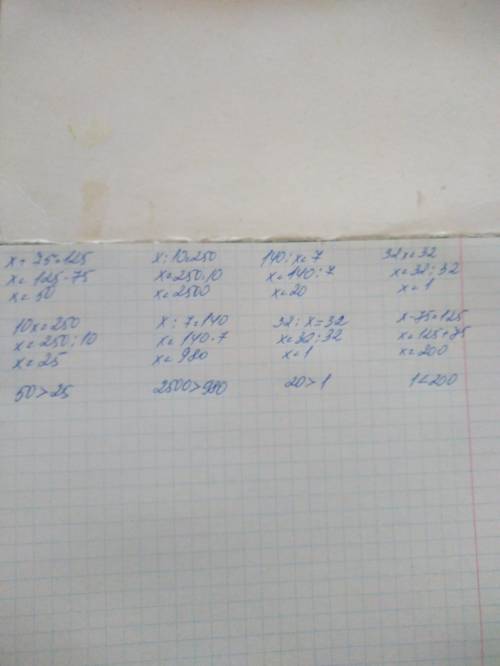 x + 75 = 125
x = 125 - 75
x = 50
x : 10 = 250
x = 250 · 10
x = 2500
140 : x = 7
x = 140 : 7
x = 20
32x = 32
x = 32 : 32
x = 1
10x = 250
x = 250 : 10
x = 25
x : 7 = 140
x = 140 · 7
x = 980
32 : x = 32
x = 30 : 32
x = 1
x - 75 = 125
x = 125 + 75
x = 200
50 > 25
2500 > 980
20 > 1
1 < 200